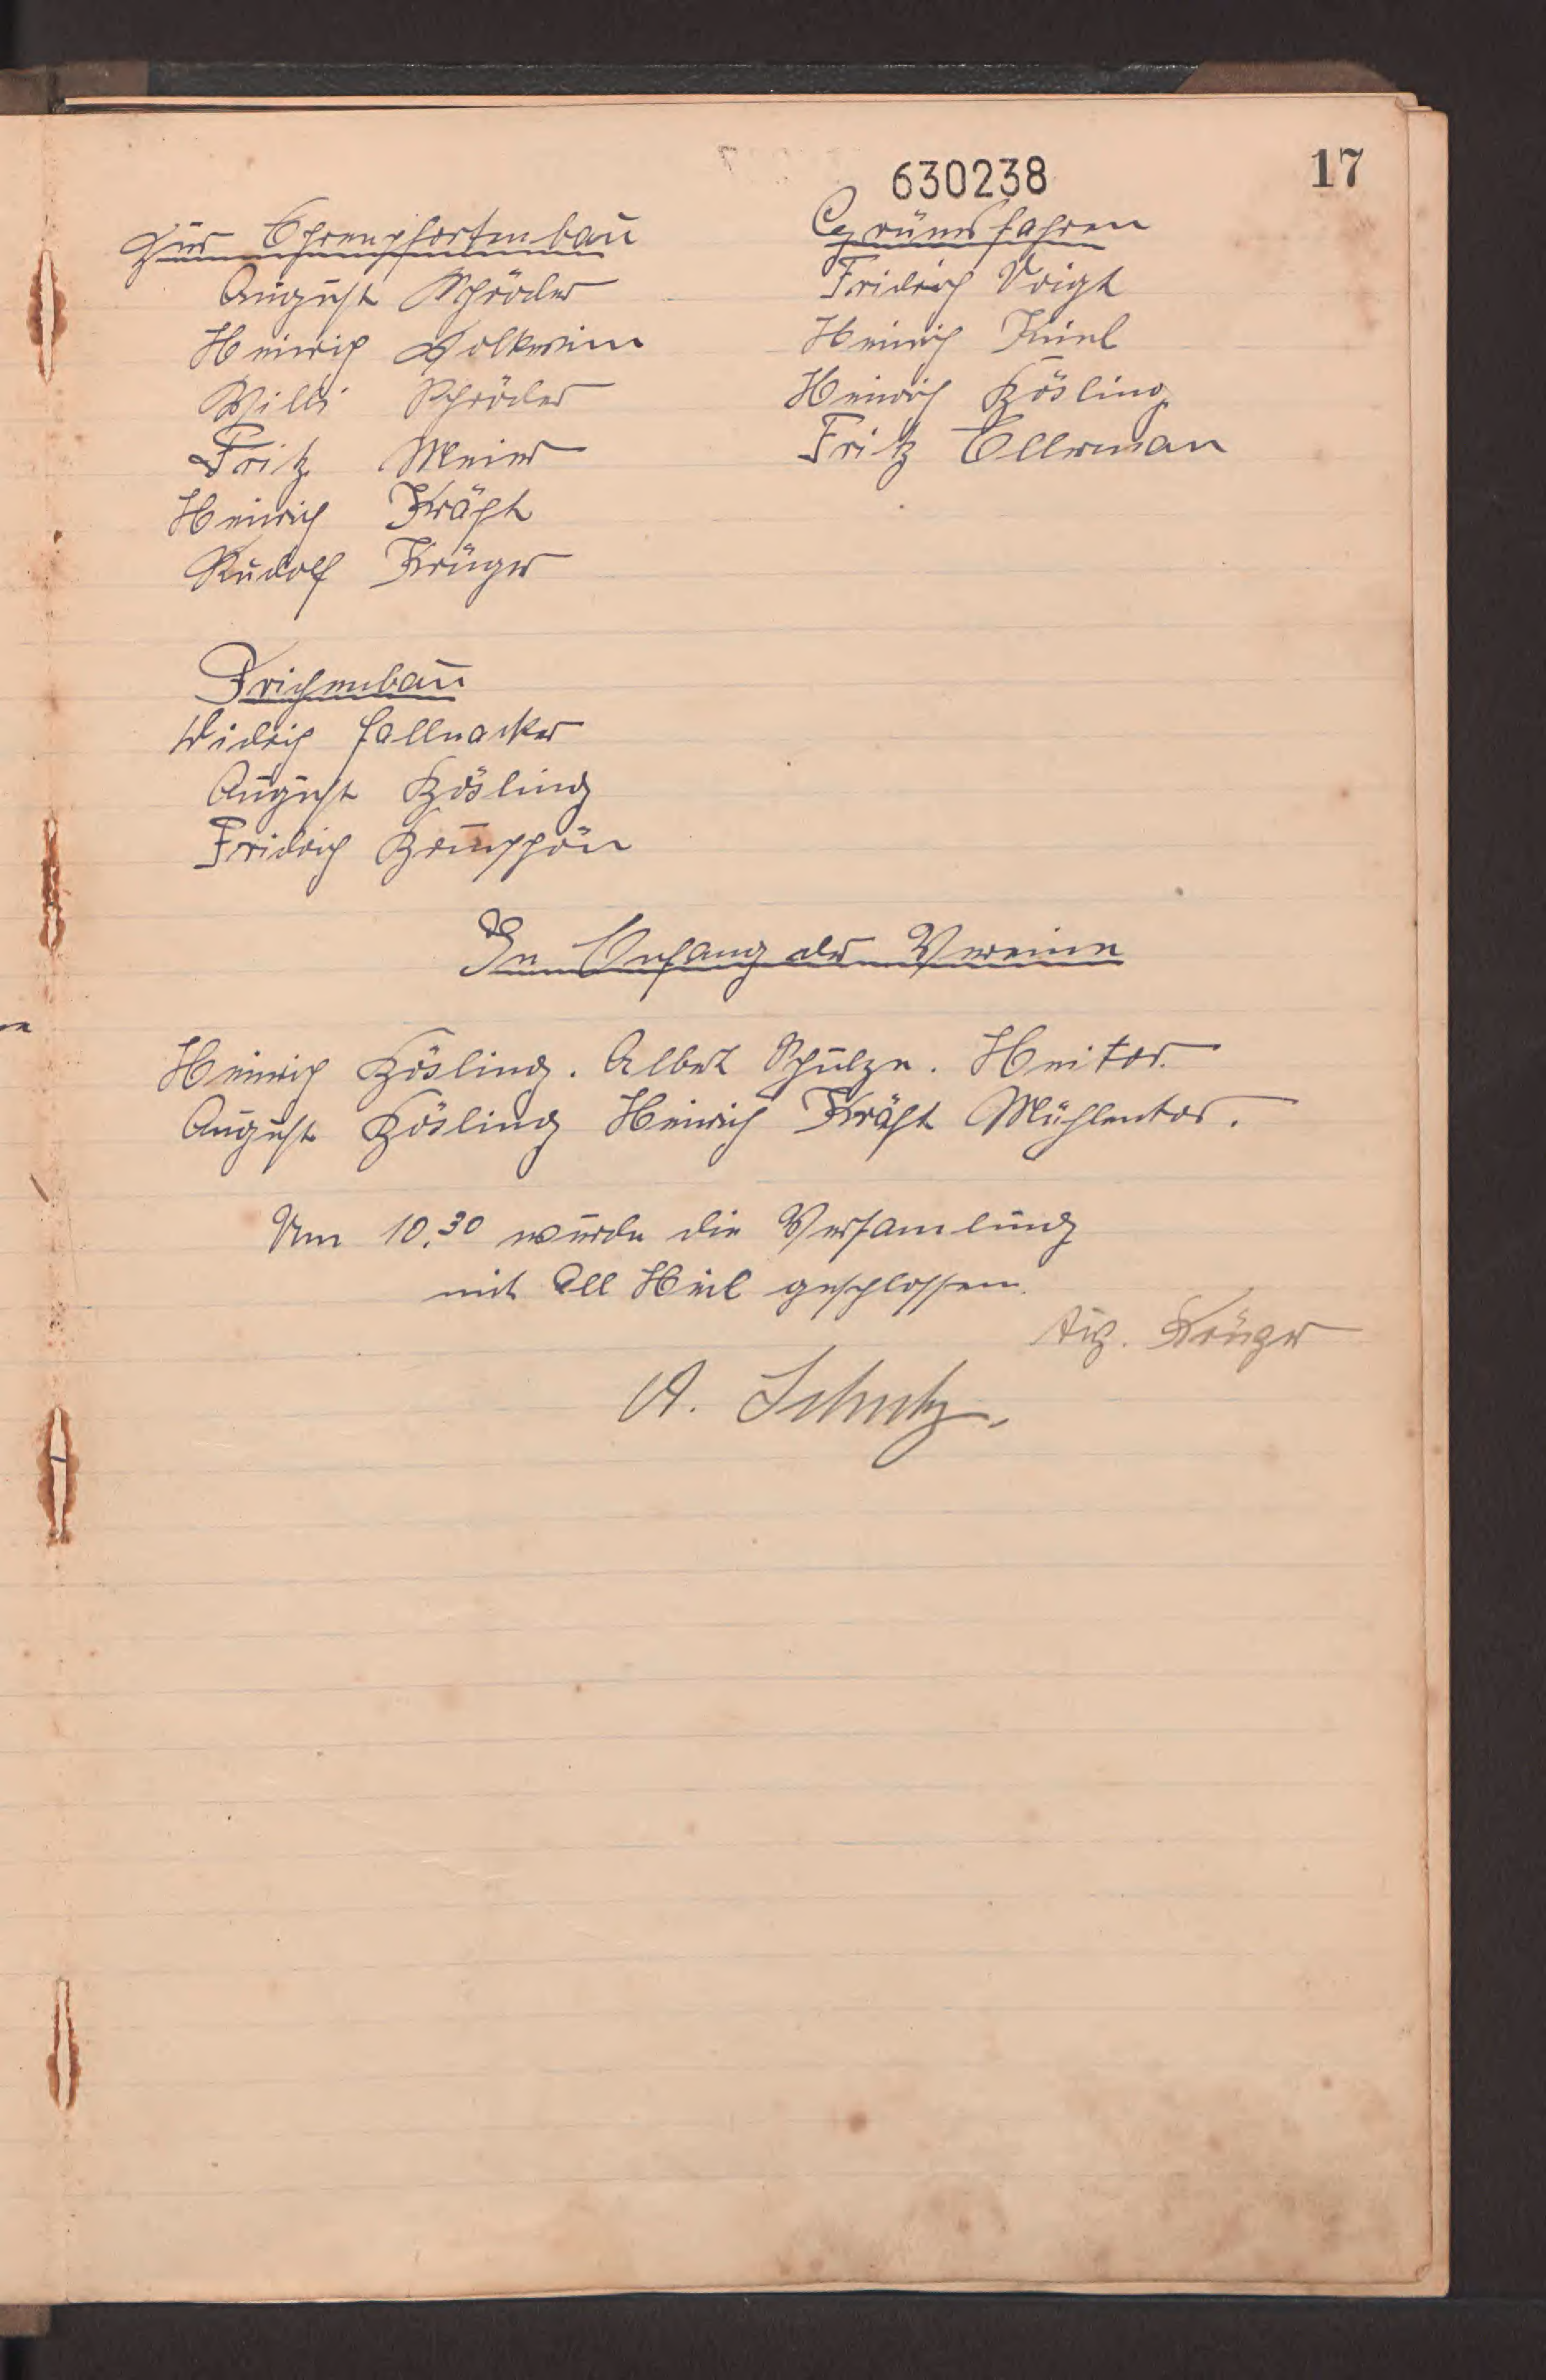 630238
17
Zur Ehrenpfortenbau
August Schröder
Heinrich Volkerien
Willi Schröder
Fritz Meier
Heinrich Kräft
Rudolf Krüger
Grünes fahren
Fridrich Voigt
Heinrich Kü
Heinrich Kösling
Fritz Ellerman
Frichenbau
Didrich Hallnacker
August Kösling
Fridrich
In Emfang der Vereine
Heinrich Kösling. Albert Schulze. Heitor.
August Kösling Heinrich Kräft Mühlentor.
Um 10.30 wurde die Versamlung
mit All Heil geschlossen.
Aug. Krüger
A. Schulz.